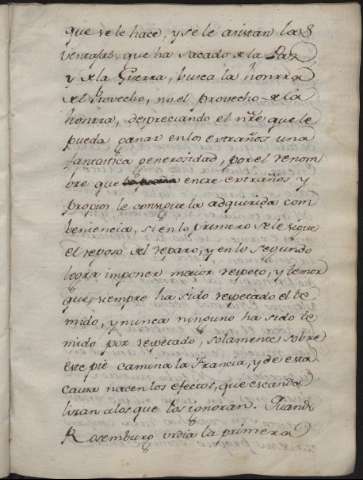 que se le hace, y se le avistan las 8
ventajas, que ha sacado de la Paz
y de la Guerra, busca la honrra
del Provecho, no el provecho de la
honrra, despreciando el nre que le
pueda ganar en los extraños una
fantastica generosidad, por el renom
bre que entre extraños y
propios le consigue la adquirida com
beniencia, si en lo primero se le sigue
el reposo del reparo, y en lo segundo
logra imponer maior respeto, y temor
que siempre ha sido respetado el te
mido, y nunca ninguno ha sido te
mido por respetado, solamente sobre
este pie camina la Francia, y de esta
causa nacen los efectos, que escanda
lizan a los que los ignoran. Quando
Rosemburg vrdia la primera